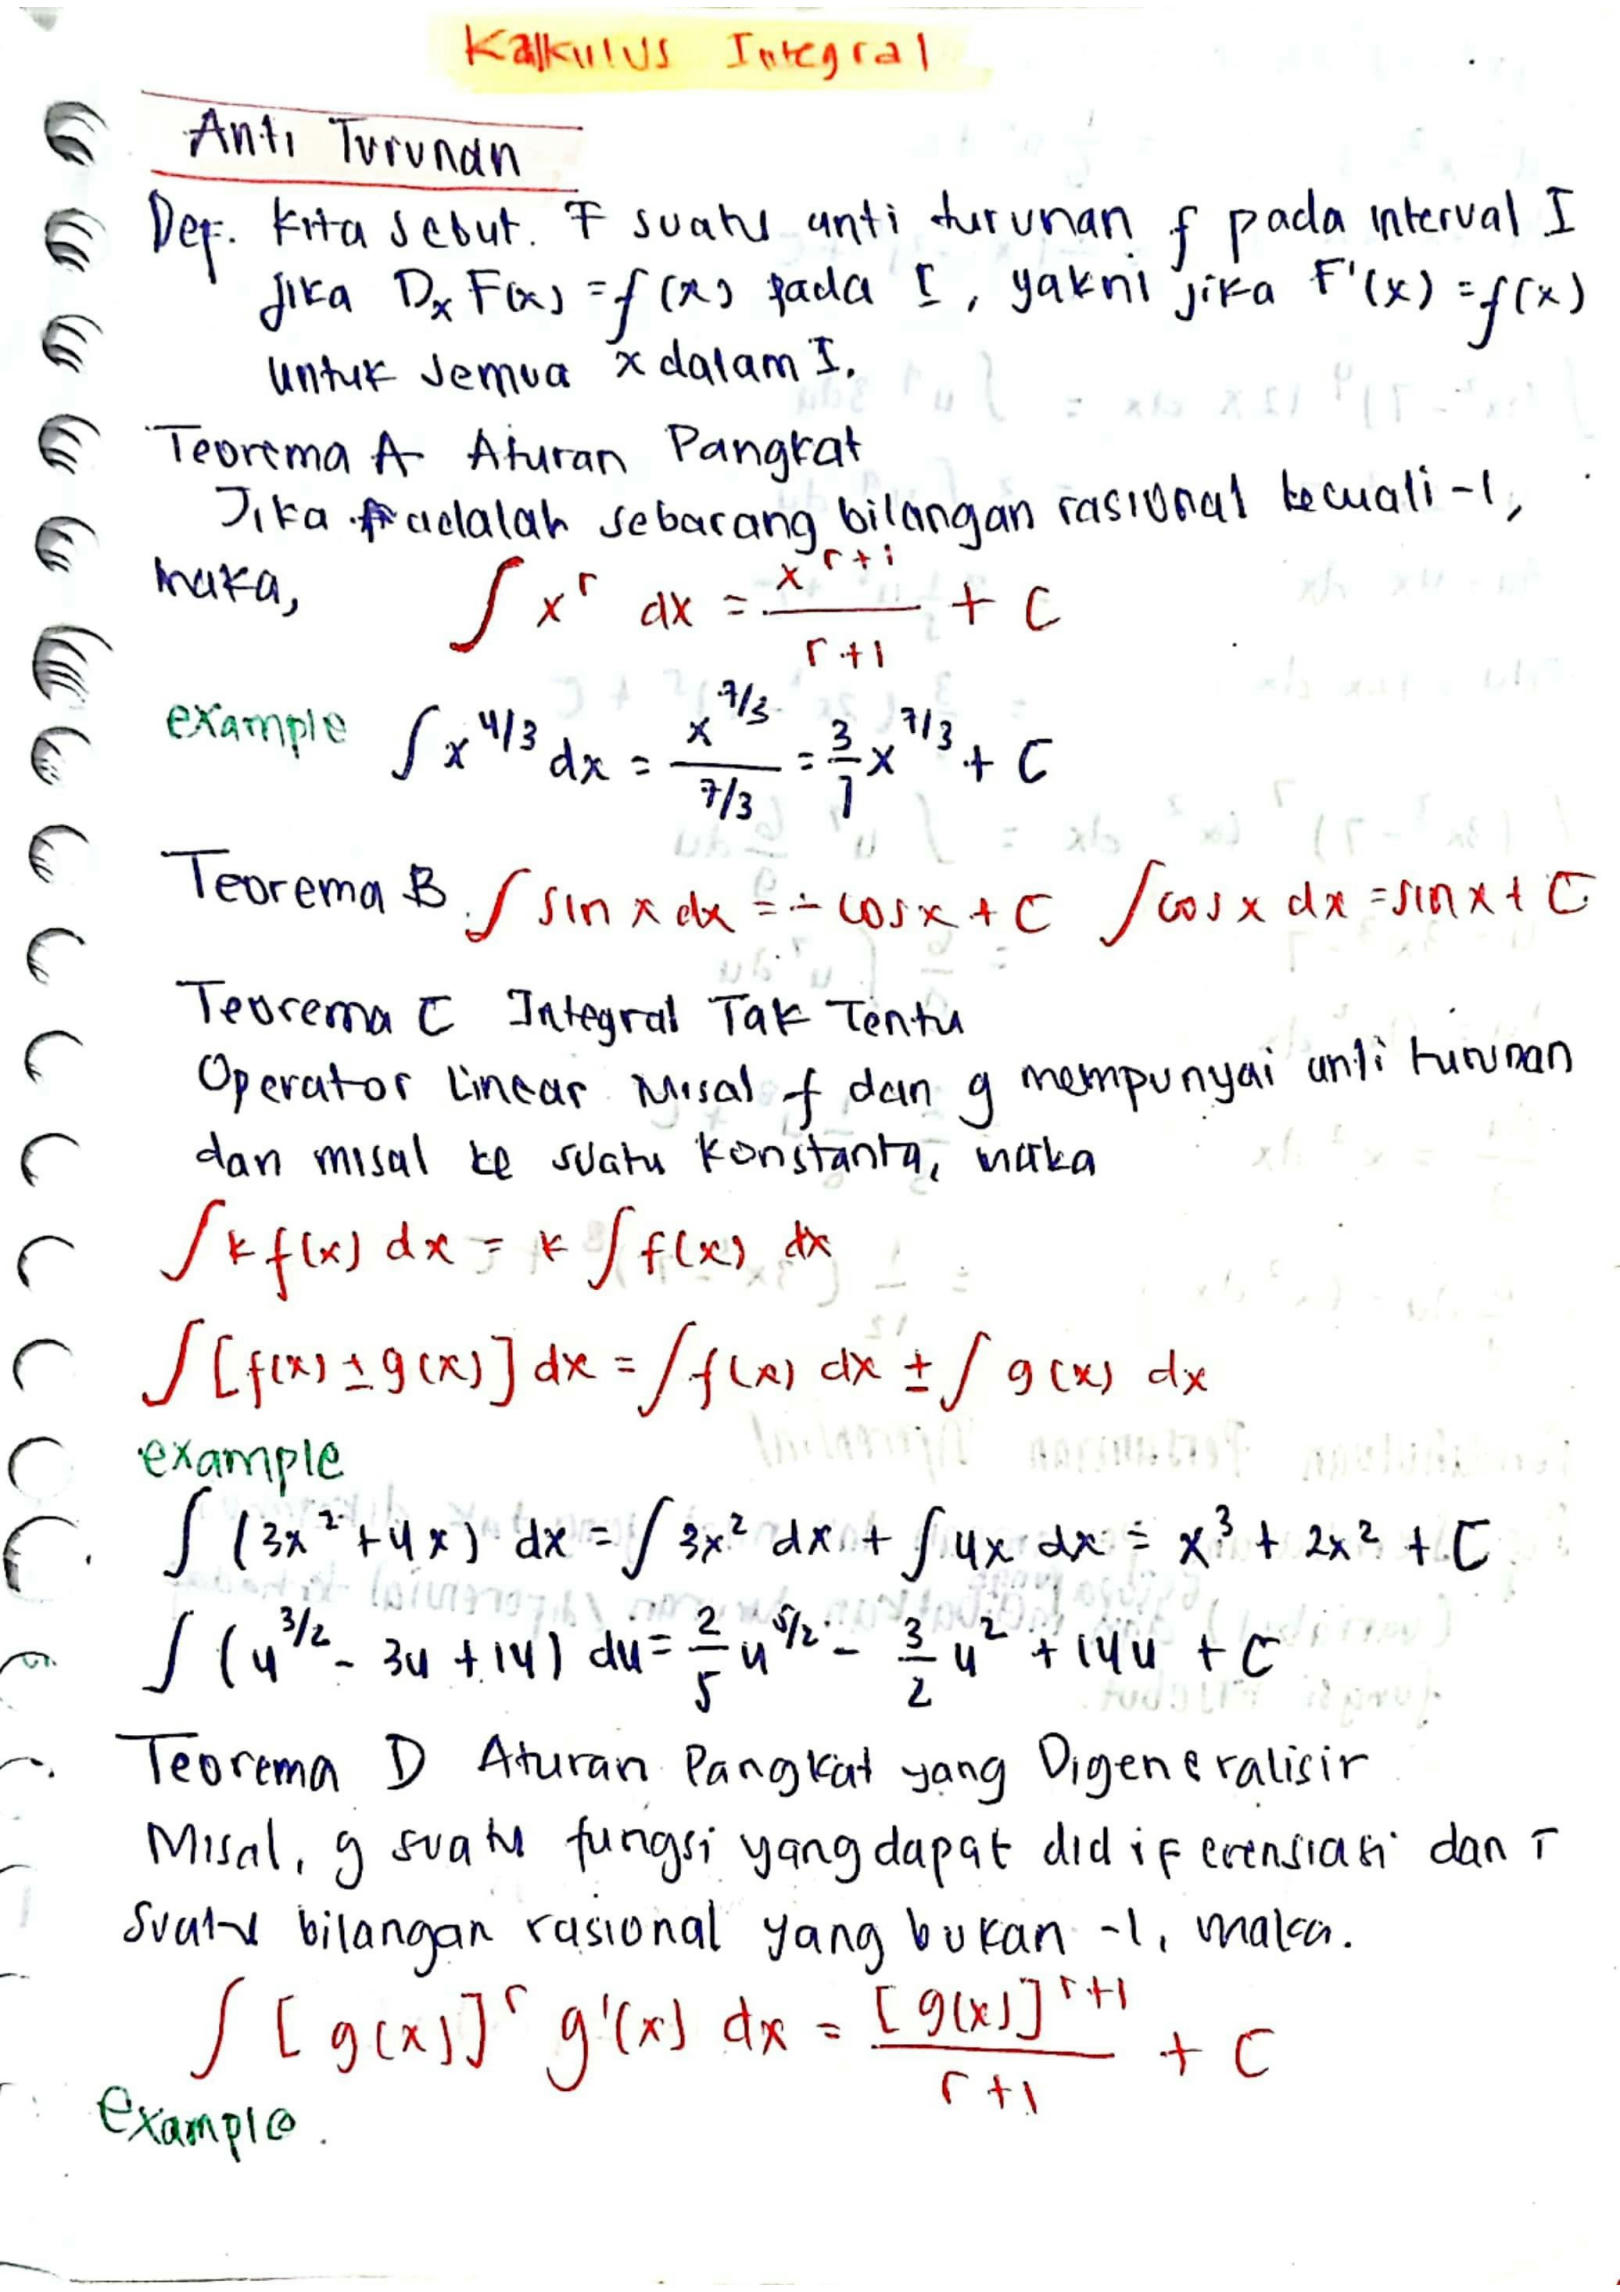 Kalkulus Integral
Anti Turunan
Def. Kita sebut. F suatu anti turunan f pada interval I
jika Dx F(x) = f(x) pada I, yakni jika F'(x) = f(x)
untuk semua x dalam I.
Teorema A Aturan Pangkat
Jika r adalah sebarang bilangan rasional kecuali -1,
maka, ∫ x^r dx = x^(r+1)/(r+1) + C
example ∫ x^(4/3) dx = x^(7/3)/(7/3) = 3/7 x^(7/3) + C
Teorema B ∫ sin x dx = - cos x + C ∫ cos x dx = sin x + C
Teorema C Integral Tak Tentu
Operator Linear Misal f dan g mempunyai anti turunan
dan misal k suatu konstanta, maka
∫ k f(x) dx = k ∫ f(x) dx
∫ [f(x) ± g(x)] dx = ∫ f(x) dx ± ∫ g(x) dx
example
∫ (3x² + 4x) dx = ∫ 3x² dx + ∫ 4x dx = x³ + 2x² + C
∫ (u^(3/2) - 3u + 14) du = 2/5 u^(5/2) - 3/2 u² + 14u + C
Teorema D Aturan Pangkat yang Digeneralisir
Misal, g suatu fungsi yang dapat didiferensiasi dan r
suatu bilangan rasional yang bukan -1, maka.
∫ [g(x)]^r g'(x) dx = [g(x)]^(r+1)/(r+1) + C
Example.